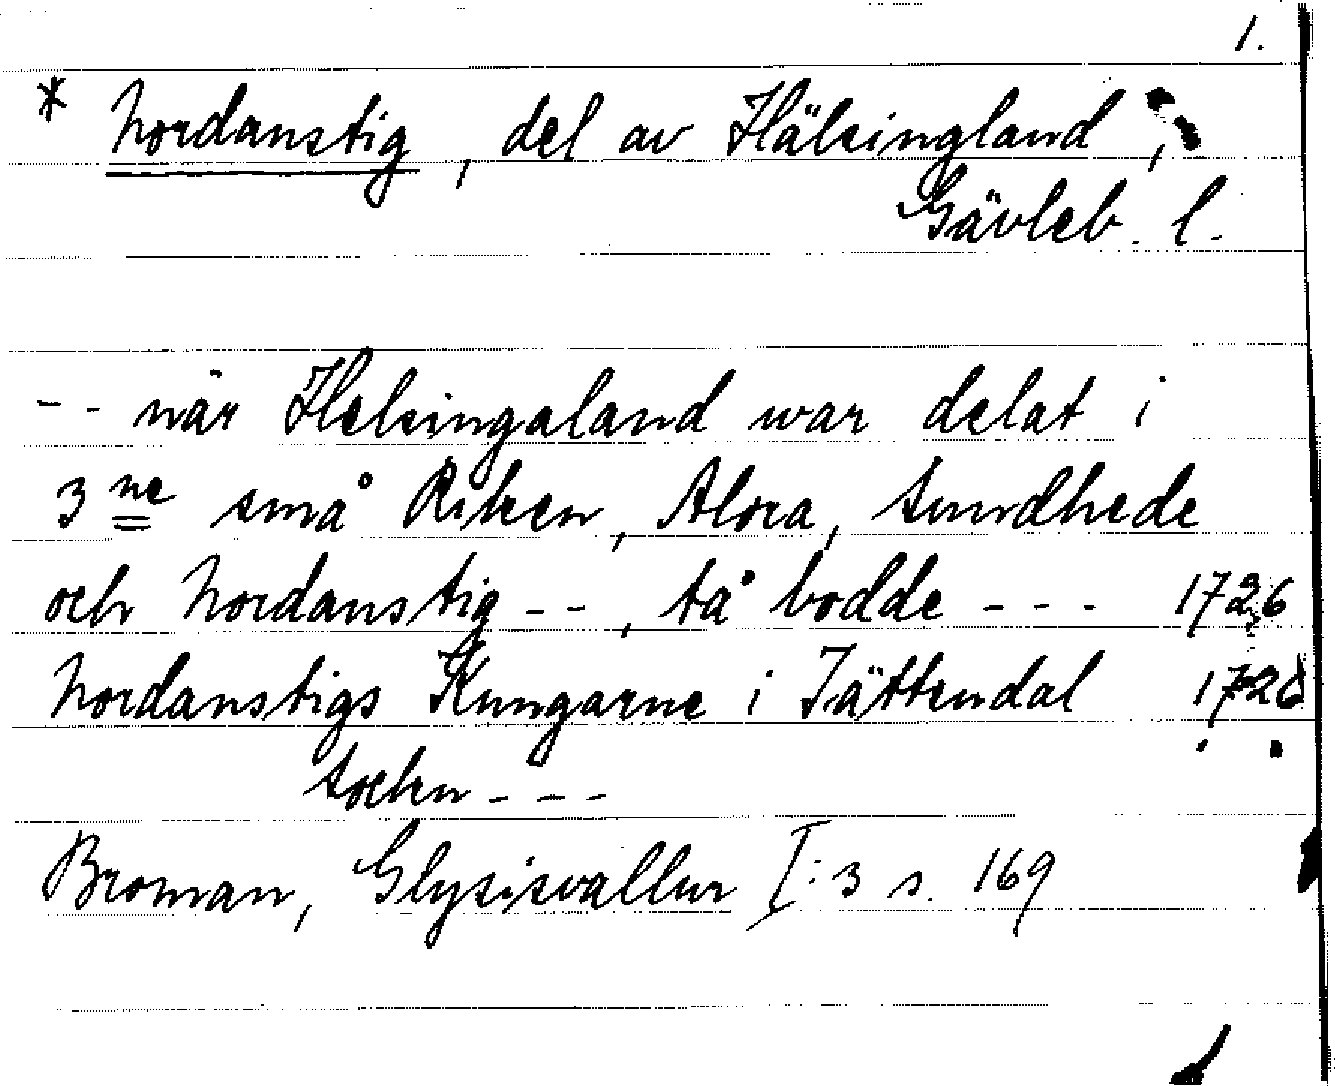 1.
* Nordanstig, del av Hälsingland,
Gävleb. l.
- - när Helsingaland war delat i
3 ne små Riken, Alora, Sundhede
och Nordanstig - - , tå bodde - - - 1726
Nordanstigs Kungarne i Jättendal 1726
Sochn - - -
Broman, Glysisvallur I:3 s. 169